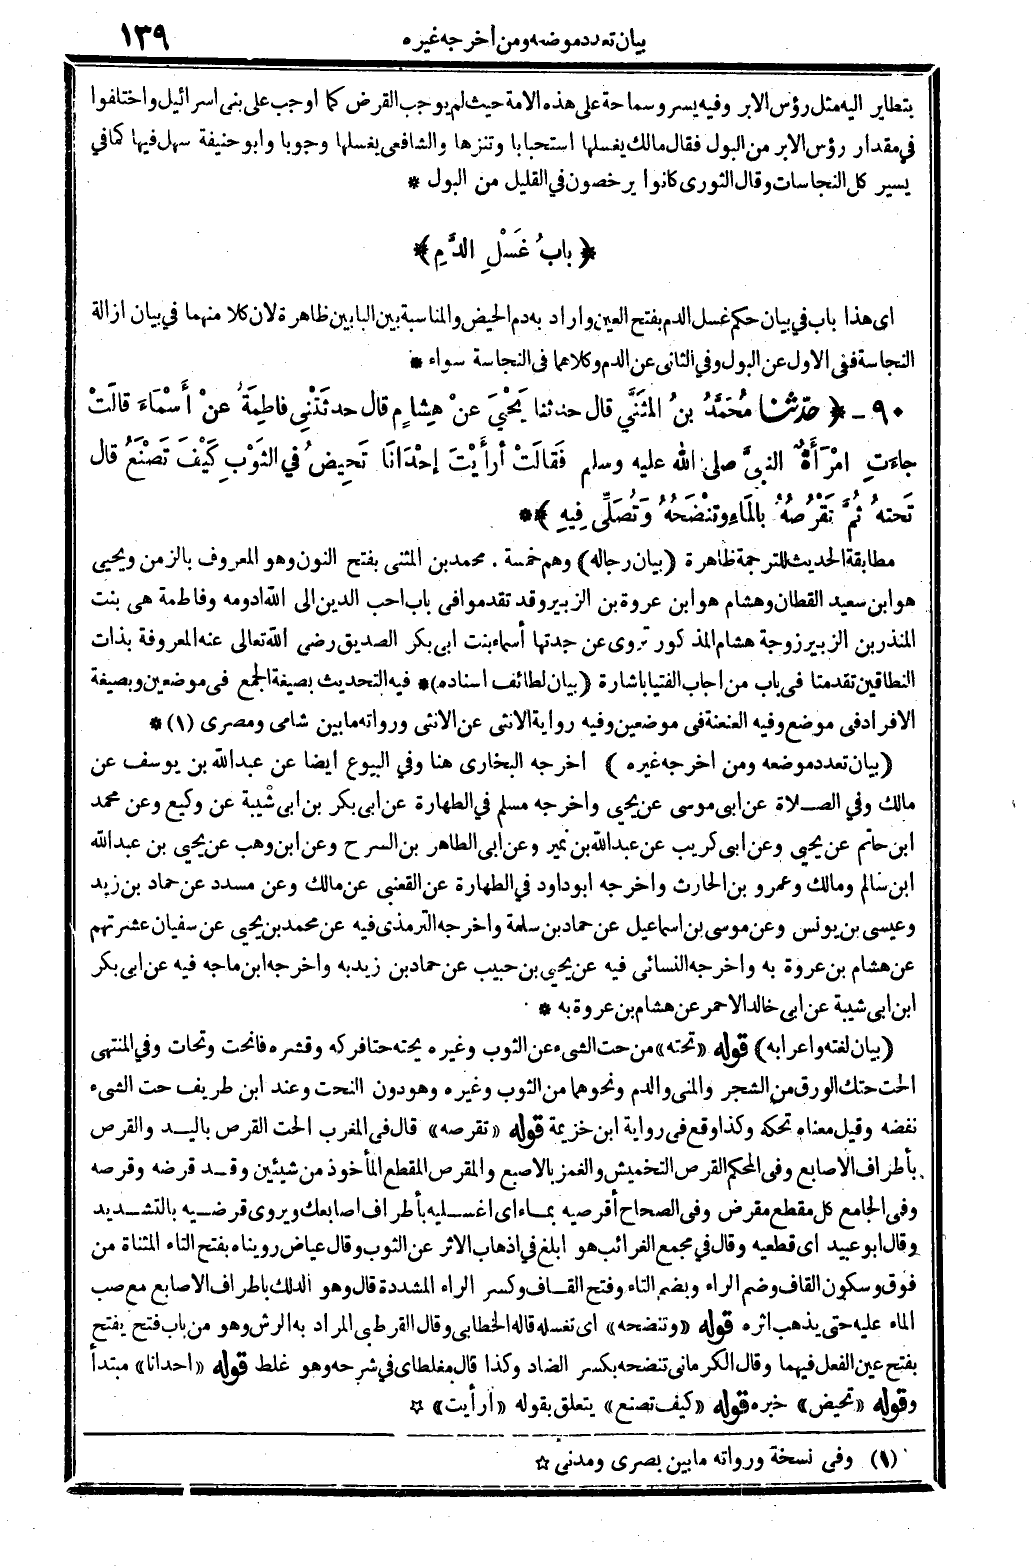 بيان تعدد موضعه ومن أخرجه غيره ١٣٩
يتطاير اليه مثل رؤس الابر وفيه يسر وسماحة على هذه الامة حيث لم يوجب القرض كما اوجب على بنى اسرائيل واختلفوا
في مقدار رؤس الابر من البول فقال مالك يغسلها استحبابا وتنزها والشافعى يغسلها وجوبا وابو حنيفة سهل فيها كما في
يسير كل النجاسات وقال الثورى كانوا يرخصون في القليل من البول *
﴿ بابُ غَسْلِ الدَّمِ ﴾
اى هذا باب في بيان حكم غسل الدم بفتح العين واراد به دم الحيض والمناسبة بين البابين ظاهرة لان كلا منهما في بيان ازالة
النجاسة ففى الاول عن البول وفي الثانى عن الدم وكلاهما فى النجاسة سواء *
٩٠ - ﴿ حدّثنا مُحَمَّدُ بنُ المُثَنَّي قال حدثنا يَحْيَي عَنْ هِشامٍ قال حدثَتْنِي فاطِمَةُ عنْ أَسْمَاءَ قالَتْ
جاءَتِ امْرَأَةٌ النبيَّ صلى الله عليه وسلم فَقالَتْ أرأَيْتَ إحْدَانَا تَحِيضُ في الثَوْبِ كَيْفَ تَصْنَعُ قال
تَحتهُ ثُمَّ تَقْرُصُهُ بالمَاءِ وتنْضَحُهُ وَتُصَلِّى فِيهِ ﴾ **
مطابقة الحديث للترجمة ظاهرة (بيان رجاله) وهم خمسة . محمد بن المثنى بفتح النون وهو المعروف بالزمن ويحيى
هو ابن سعيد القطان وهشام هو ابن عروة بن الزبير وقد تقدموا في باب احب الدين الى الله ادومه وفاطمة هى بنت
المنذر بن الزبير زوجة هشام المذكور تروى عن جدتها أسماء بنت ابى بكر الصديق رضى الله تعالى عنه المعروفة بذات
النطاقين تقدمتا فى باب من اجاب الفتيا باشارة (بيان لطائف اسناده) * فيه التحديث بصيغة الجمع فى موضعين وبصيغة
الافراد فى موضع وفيه العنعنة فى موضعين وفيه رواية الانثى عن الانثى ورواته ما بين شامى ومصرى (١) *
(بيان تعدد موضعه ومن اخرجه غيره) اخرجه البخارى هنا وفي البيوع ايضا عن عبد الله بن يوسف عن
مالك وفي الصلاة عن ابى موسى عن يحيي واخرجه مسلم في الطهارة عن ابى بكر بن ابى شيبة عن وكيع وعن محمد
ابن حاتم عن يحيي وعن ابى كريب عن عبد الله بن نمير وعن ابى الطاهر بن السرح وعن ابن وهب عن يحيي بن عبد الله
ابن سالم ومالك وعمرو بن الحارث واخرجه ابو داود في الطهارة عن القعنبى عن مالك وعن مسدد عن حماد بن زيد
وعيسى بن يونس وعن موسى بن اسماعيل عن حماد بن سلمة واخرجه الترمذى فيه عن محمد بن يحيي عن سفيان عشرتهم
عن هشام بن عروة به واخرجه النسائى فيه عن يحيي بن حبيب عن حماد بن زيد به واخرجه ابن ماجه فيه عن ابى بكر
ابن ابى شيبة عن ابى خالد الاحمر عن هشام بن عروة به *
(بيان لغته واعرابه) قوله «تحته» من حت الشىء عن الثوب وغيره يحته حتا فركه وقشره فانحت وتحات وفي المنتهى
الحت حتك الورق من الشجر والمنى والدم ونحوهما من الثوب وغيره وهو دون النحت وعند ابن طريف حت الشىء
نفضه وقيل معناه تحكه وكذا وقع فى رواية ابن خزيمة قوله «تقرصه» قال فى المغرب الحت القرص باليد والقرص
بأطراف الاصابع وفى المحكم القرص التخميش والغمز بالاصبع والمقرص المقطع المأخوذ من شيئين وقد قرضه وقرصه
وفى الجامع كل مقطع مقرض وفى الصحاح أقرصيه بماء اى اغسليه بأطراف اصابعك ويروى قرضيه بالتشديد
وقال ابو عبيد اى قطعيه وقال في مجمع الغرائب هو ابلغ في اذهاب الاثر عن الثوب وقال عياض رويناه بفتح التاء المثناة من
فوق وسكون القاف وضم الراء وبضم التاء وفتح القاف وكسر الراء المشددة قال وهو الدلك باطراف الاصابع مع صب
الماء عليه حتى يذهب اثره قوله «وتنضحه» اى تغسله قاله الخطابى وقال القرطبى المراد به الرش وهو من باب فتح يفتح
بفتح عين الفعل فيهما وقال الكرمانى تنضحه بكسر الضاد وكذا قال مغلطاى في شرحه وهو غلط قوله «احدانا» مبتدأ
وقوله «تحيض» خبره قوله «كيف تصنع» يتعلق بقوله «أرأيت» ☆
(١) وفى نسخة ورواته ما بين بصرى ومدنى ☆